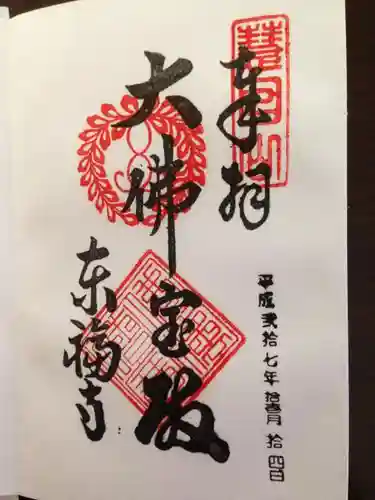 奉拝
大佛宝殿
東福寺
平成弐拾七年拾壱月拾四日
慧日山